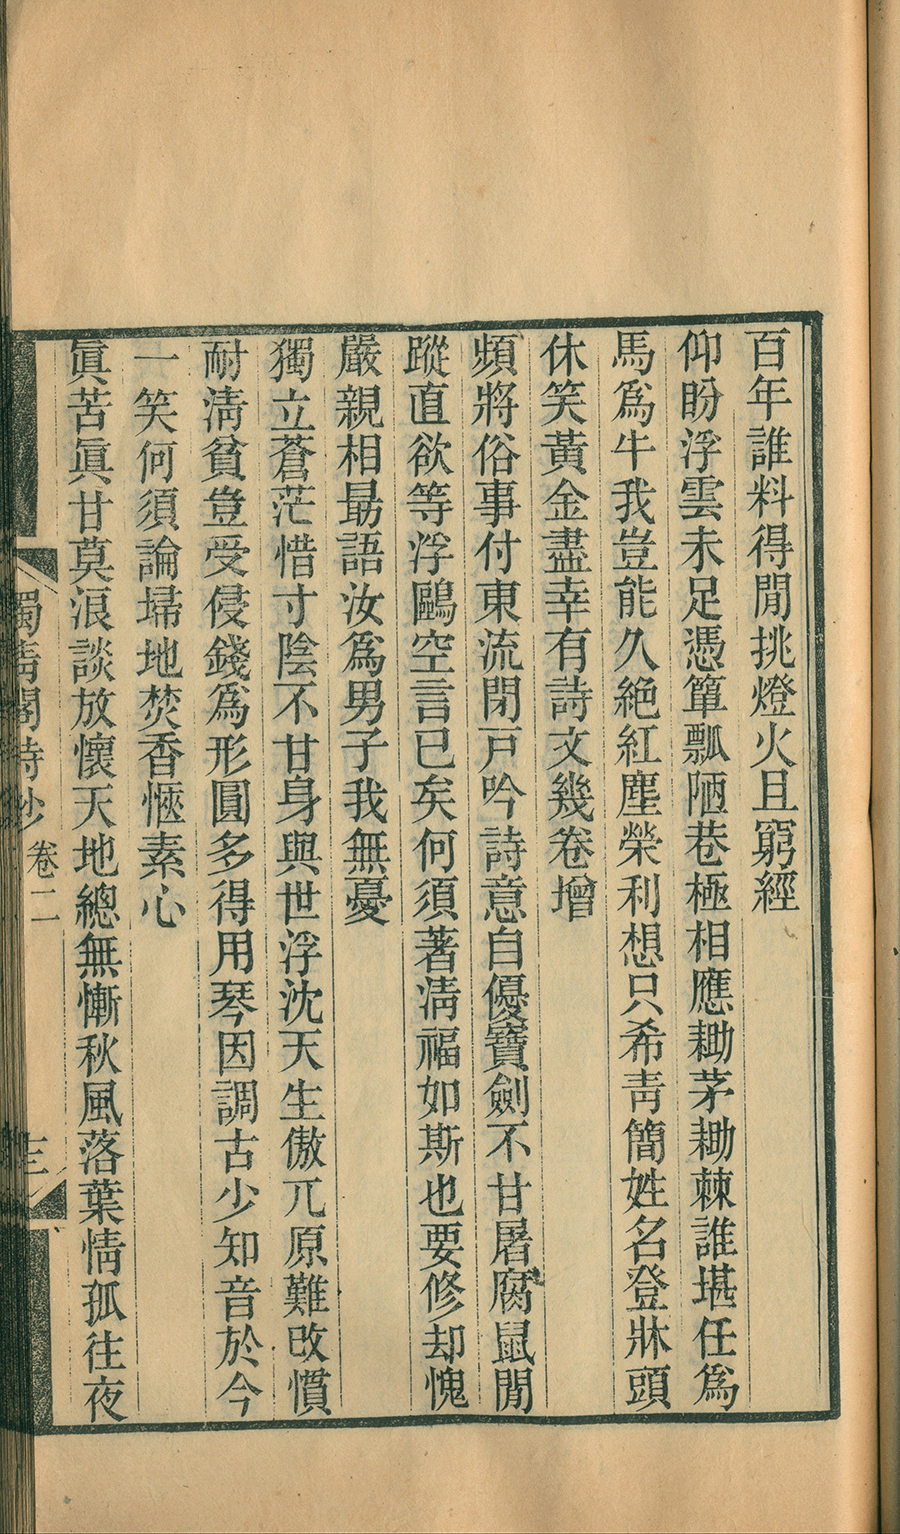 百年誰料得閒挑燈火且窮經
仰盼浮雲未足憑簞瓢陋巷極相應耡茅耡棘誰堪任爲
馬爲牛我豈能久絶紅塵榮利想只希靑簡姓名登牀頭
休笑黃金盡幸有詩文幾卷增
頻將俗事付東流閉戸吟詩意自優寶劍不甘屠腐鼠閒
蹤直欲等浮鷗空言已矣何須著淸福如斯也要修却愧
嚴親相勗語汝爲男子我無憂
獨立蒼茫惜寸陰不甘身與世浮沈天生傲兀原難改慣
耐淸貧豈受侵錢爲形圓多得用琴因調古少知音於今
一笑何須論埽地焚香愜素心
眞苦眞甘莫浪談放懷天地總無慚秋風落葉情孤往夜
獨靑閣詩鈔 卷二
三